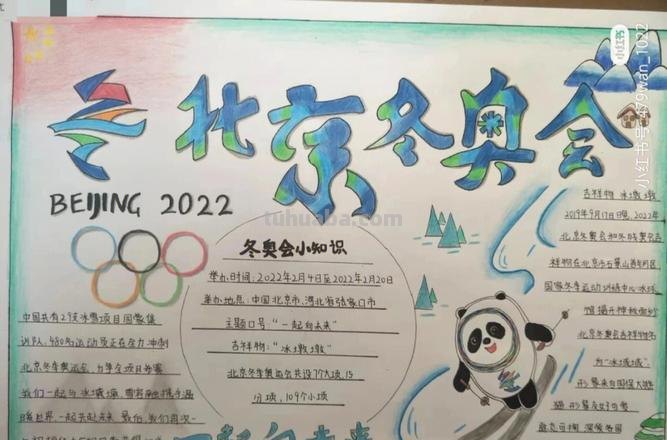 北京冬奥会
BEIJING 2022
冬奥会小知识
举办时间:2022年2月4日至2022年2月20日
举办地点:中国北京市、河北省张家口市
主题口号:“一起向未来”
吉祥物:“冰墩墩”
北京冬季奥运会共设7个大项,15
分项,109个小项
中国共有27支冰雪项目国家集
训队,480名运动员正在全力冲刺
北京冬季奥运会,力争全项目参赛
我们一起与冰墩墩、雪容融携手温
一起向未来
吉祥物 冰墩墩
2019年9月17日晚,2022年
北京冬奥会和冬残奥会吉
祥物在北京市石景山首钢园区
国家冬季运动训练中心冰球
馆揭开神秘面纱
北京冬奥会吉祥物名
为“冰墩墩”
形象来自国宝大熊
猫
tuhuaba.com
小红书
小红书号:479wan_1022